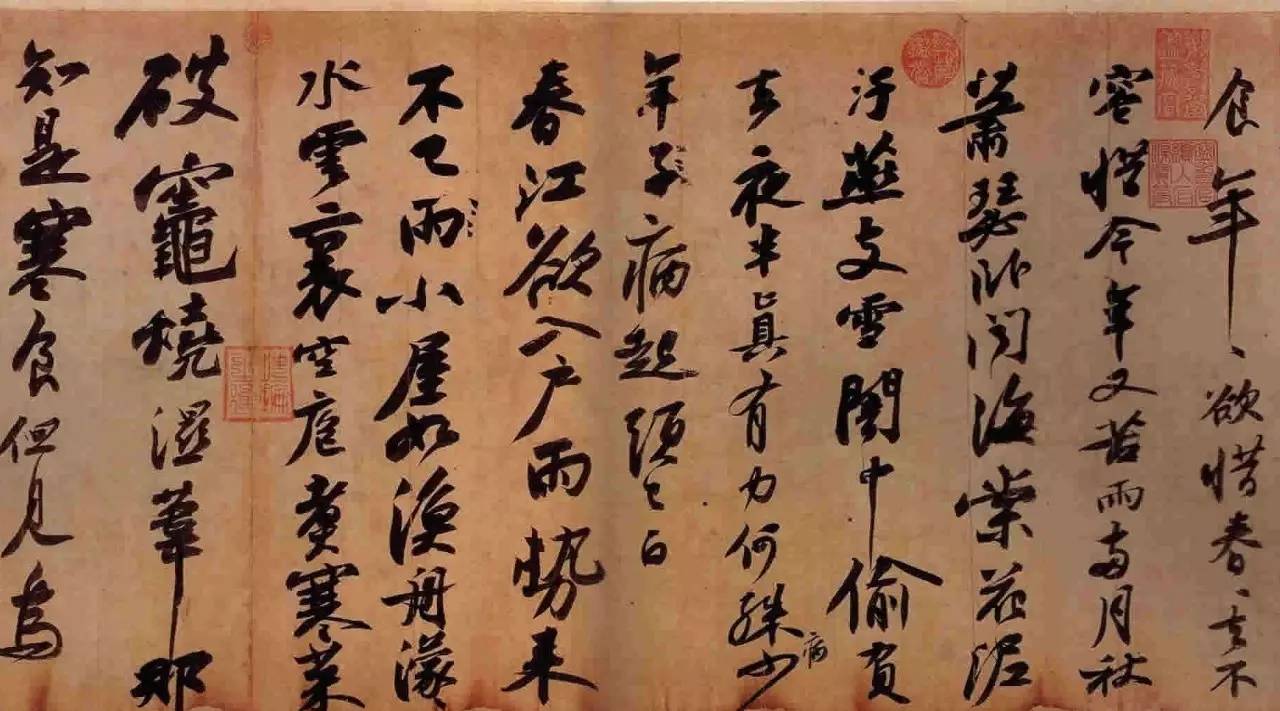 食年、欲惜春、去不
容惜今年又苦雨兩月秋
蕭瑟卧聞海棠花泥
汙燕支雪闇中偷負
去夜半真有力何殊少病
年子病起頭已白
春江欲入户雨勢來
不已雨小屋如漁舟濛
水雲裏空庖煮寒菜
破竈燒濕葦那
知是寒食但見烏